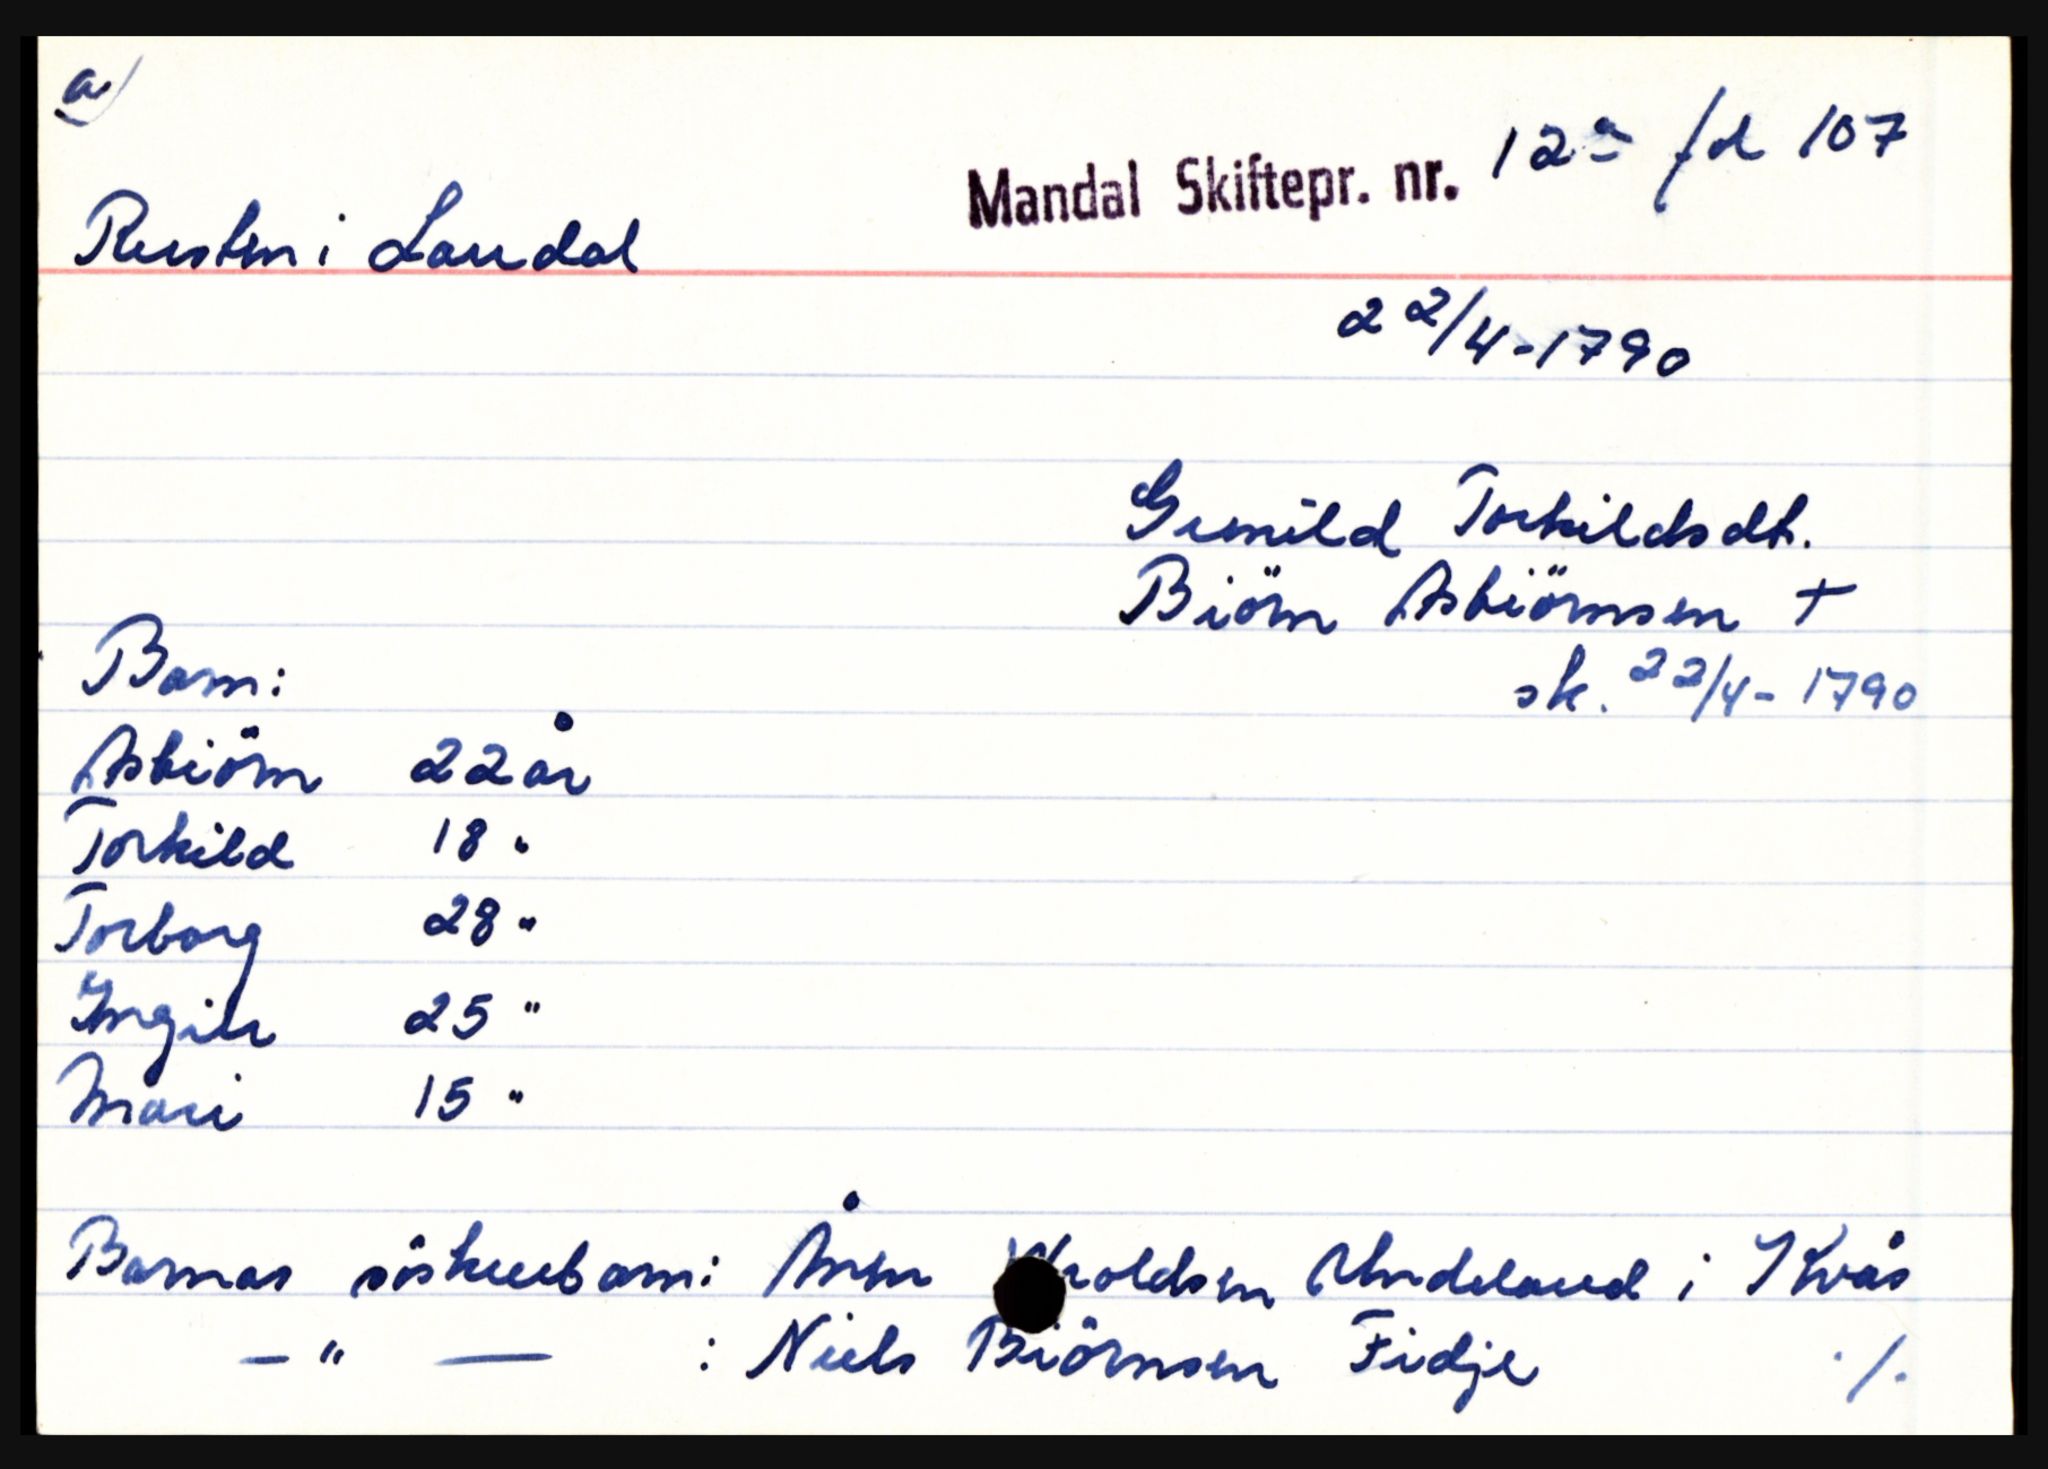 a)
Mandal Skiftepr. nr. 12a fol 107
Rusten i Laudal
22/4-1790
Gunild Torkildsdt.
Biörn Asbiörnsen +
sk. 22/4-1790
Barn:
Asbiörn 22 år
Torkild 18 "
Torborg 28 "
Ingier 25 "
Mari 15 "
Barnas söskuebarn: Ånen Undeland i Kvås
— " — : Niels Biörnsen Fidje
./.